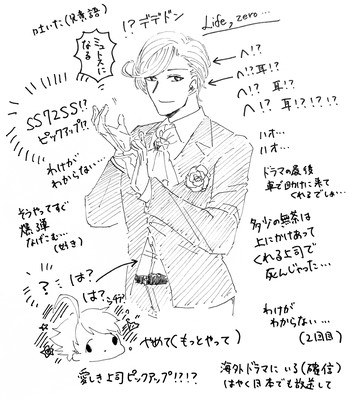 吐いた(只言語)
!?デデドン
Life, zero...
ミュトスに
なる
へ!?
へ!? 耳!?
へ!? 耳!?!?!?
SS72SS!?
ピックアップ!?
ハオ…
ハオ…
わけが
わからない…
ドラマの最後
車で助けに来て
くれるでしょ…
そうやってすぐ
爆弾
なげこむ…
(好き)
多少の無茶は
上にかけあって
くれる上司で
死んじゃった…
?
は?
は?
わけが
わからない…
(2回目)
やめて(もっとやって)
愛しき上司ピックアップ!?!?
海外ドラマにいる(確信)
はやく日本でも放送して